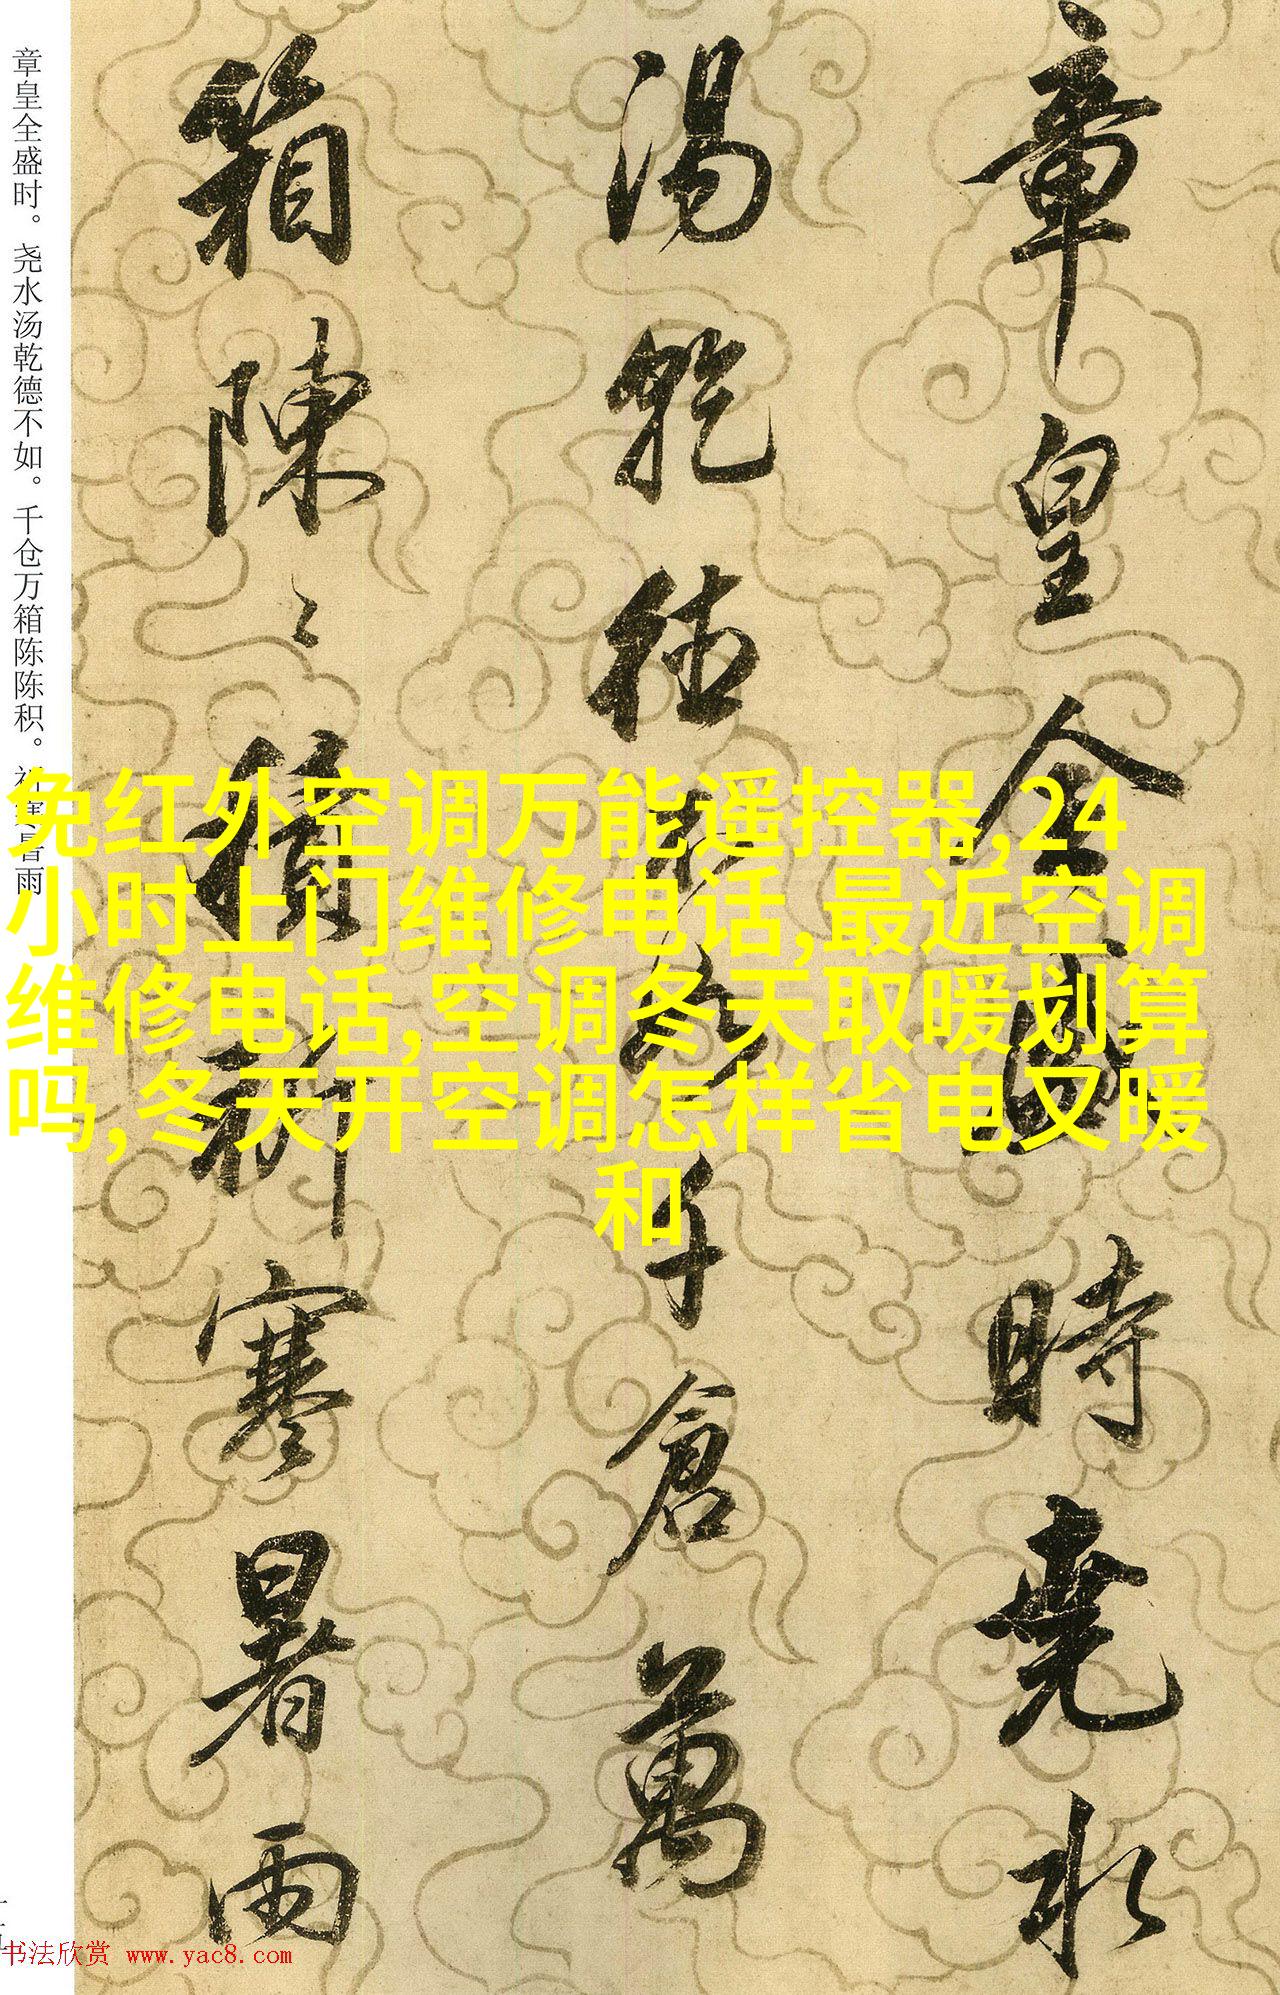 章皇全盛時堯水
湯乾德不如千倉萬
箱陳〻積祁寒暑雨
章皇全盛时。尧水汤乾德不如。千仓万箱陈陈积。祁寒暑雨
免红外空调万能遥控器,24
小时上门维修电话,最近空调
维修电话,空调冬天取暖划算
吗,冬天开空调怎样省电又暖
和
书法欣赏 www.yac8.com